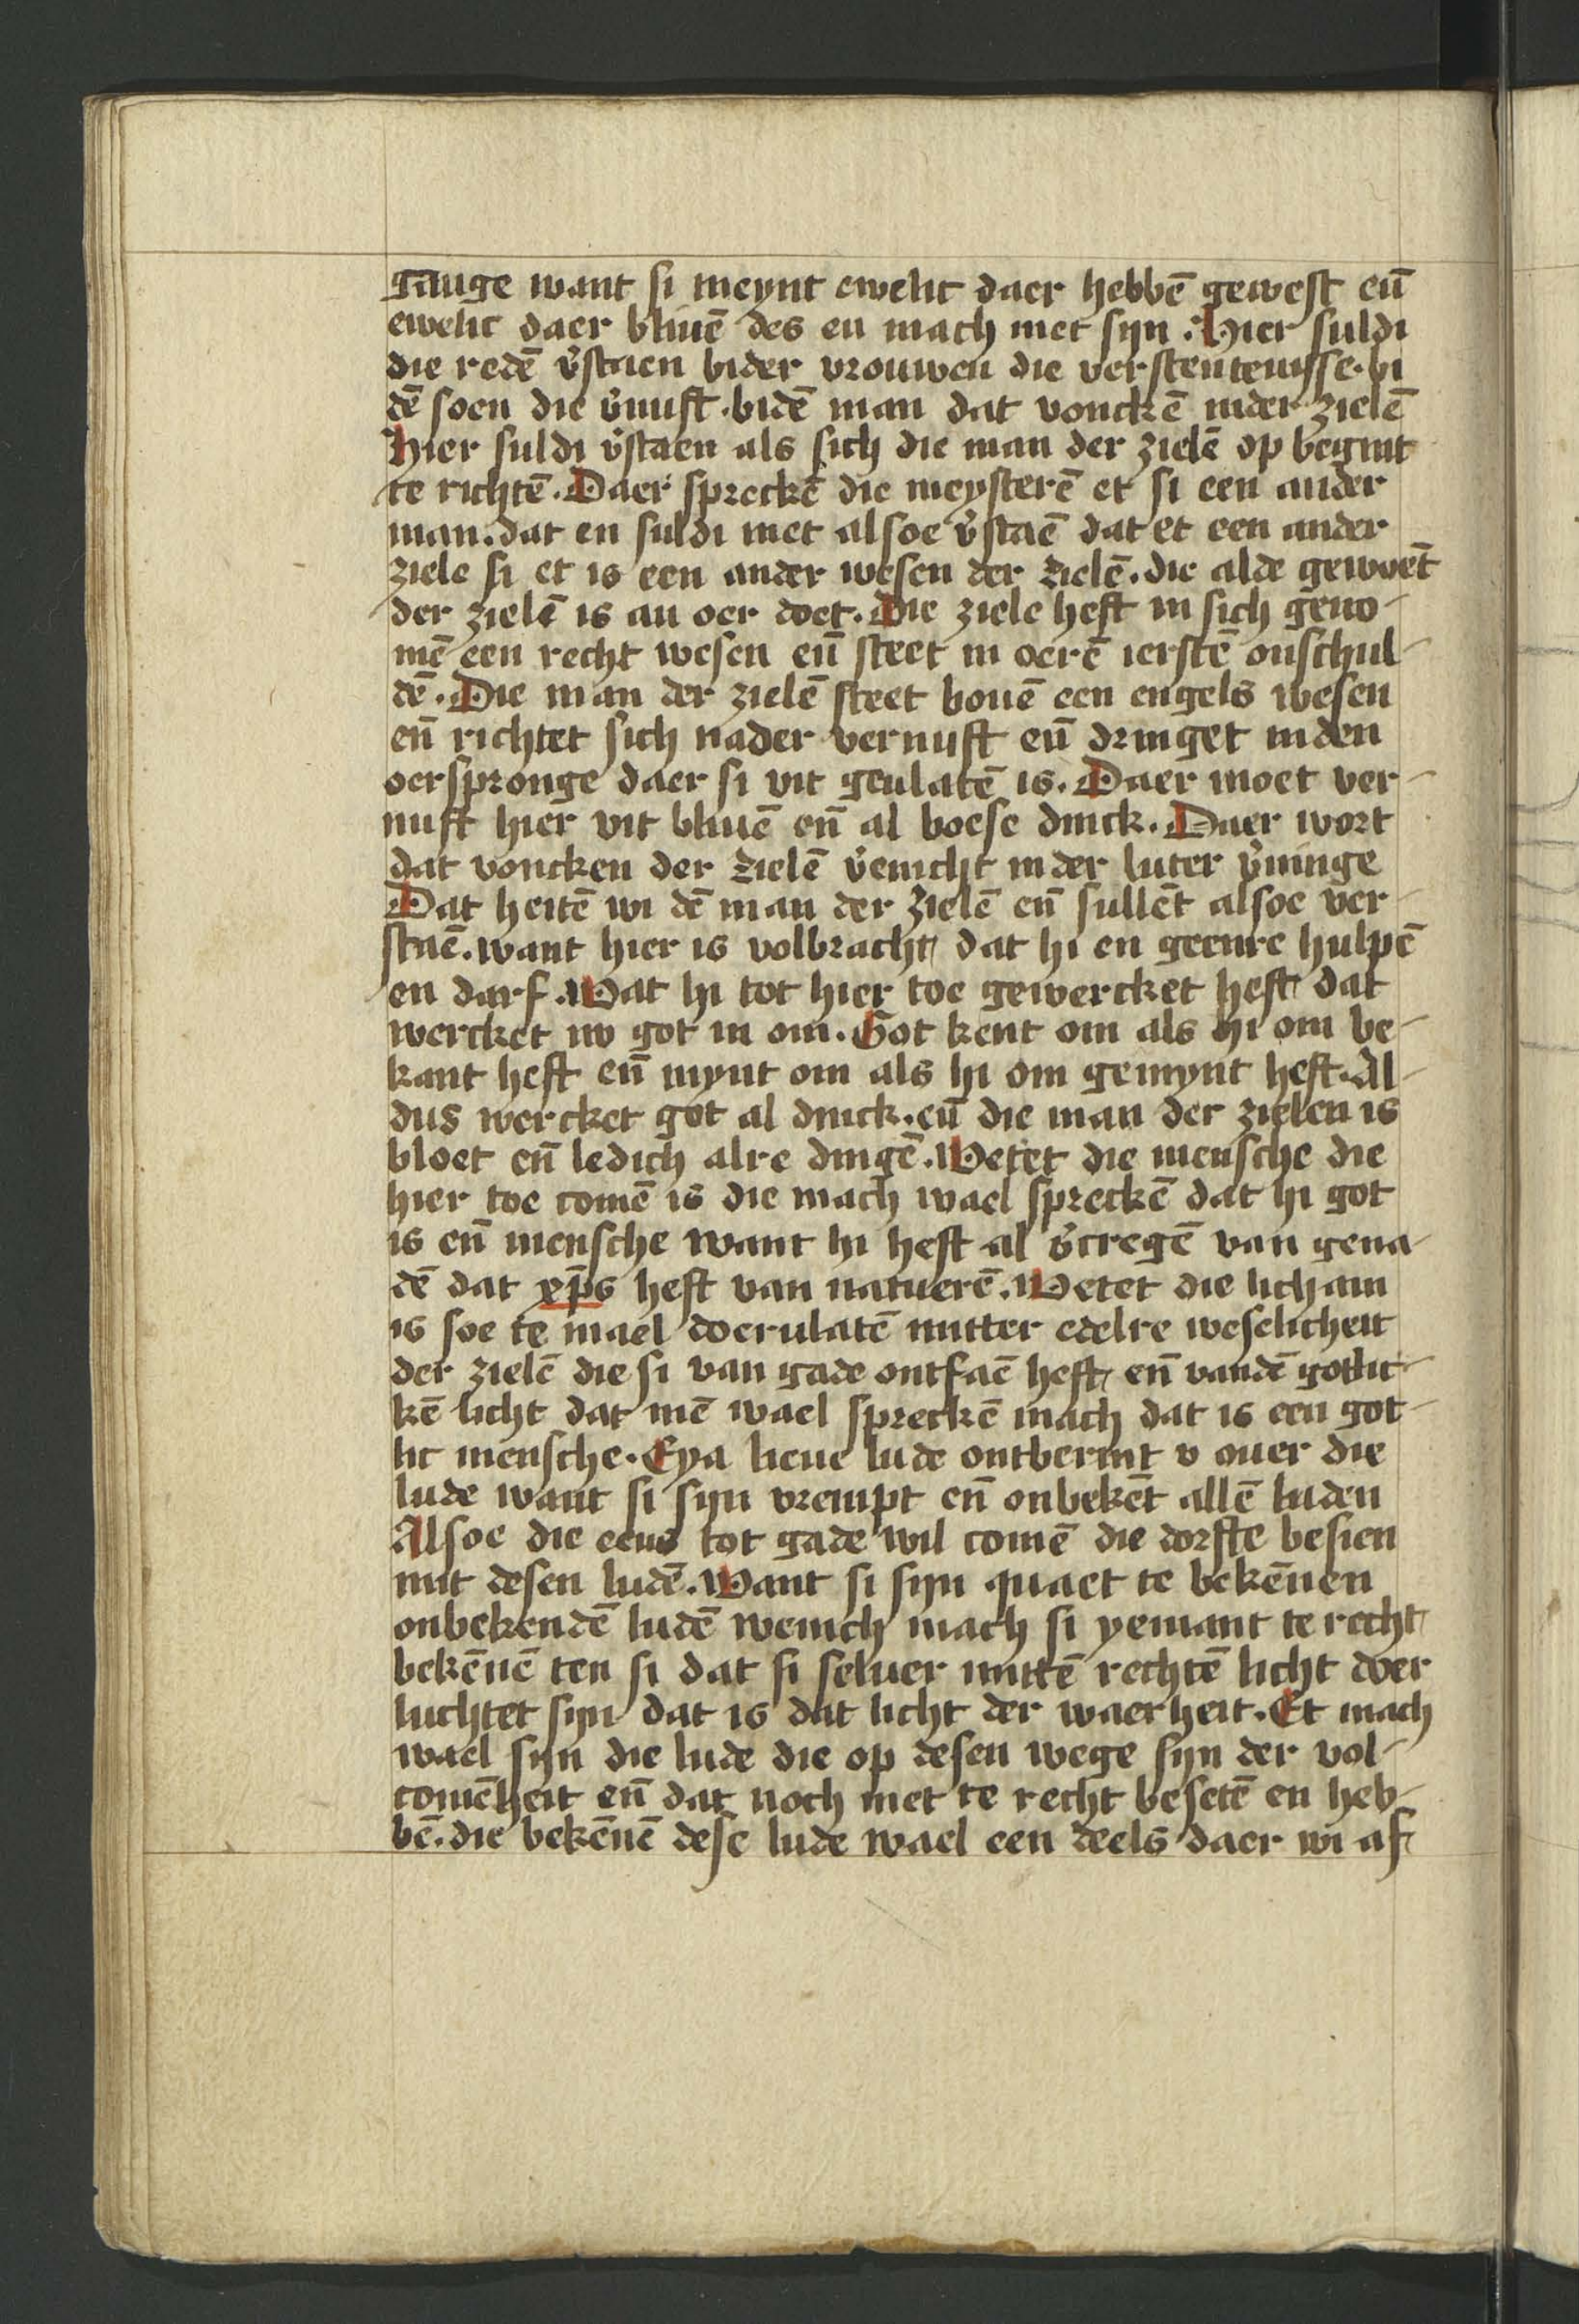 gange want si meynt ewelic daer hebbē gewest eñ
ewelic daer bliuē des en mach niet sijn. Hier suldi
die redē v̓staen bider vrouwen die verstentenisse. bi
dē soen die v̓nuft. bidē man dat vonckē inder zielē
Hier suldi v̓staen als sich die man der zielē op begint
te richtē. Daer spreckē die meysterē et si een ander
man. dat en suldi niet alsoe v̓staē dat et een ander
ziele si et is een ander wesen der zielē. die alde gewoēt
der zielē is an oer doet. Die ziele heft in sich geno-
mē een recht wesen eñ steet in oerē ierstē onschul-
dē. Die man der zielē steet bouē een engels wesen
eñ richtet sich nader vernuft eñ dringet inden
oerspronge daer si vit geulatē is. Daer moet ver-
nuft hier vit bliuē eñ al boese dinck. Daer wort
dat voncken der zielē v̓enicht inder luter v̓ninge
Dat heitē wi dē man der zielē eñ sullēt alsoe ver-
staē. want hier is volbracht dat hi en geenre hulpē
en darf. Wat hi tot hier toe gewercket heft dat
wercket nv got in om. Got kent om als hi om be-
kant heft eñ mynt om als hi om gemynt heft. Al-
dus wercket got al dinck. eñ die man der zielen is
bloet eñ ledich alre dingē. Wetet die mensche die
hier toe comē is die mach wael spreckē dat hi got
is eñ mensche want hi heft al v̓cregē van gena-
dē dat xp̄s heft van natuerē. Wetet die licham
is soe te mael doerulatē mitter edelre weselicheit
der zielē die si van gade ontfaē heft eñ vandē gotlic-
kē licht dat mē wael spreckē mach dat is een got-
lic mensche. Eya lieue lude ontbermt v ouer die
lude want si sijn vrempt eñ onbekēt allē luden
Alsoe die eens tot gade wil comē die dorfte besien
mit desen ludē. Want si sijn quaet te bekēnen
onbekendē ludē wenich mach si yemant te recht
bekēnē ten si dat si seluer mittē rechtē licht doer
luchtet sijn dat is dat licht der waerheit. Et mach
wael sijn die lude die op desen wege sijn der vol-
comēheit eñ dat noch niet te recht besetē en heb-
bē. die bekēnē dese lude wael een deels daer wi af